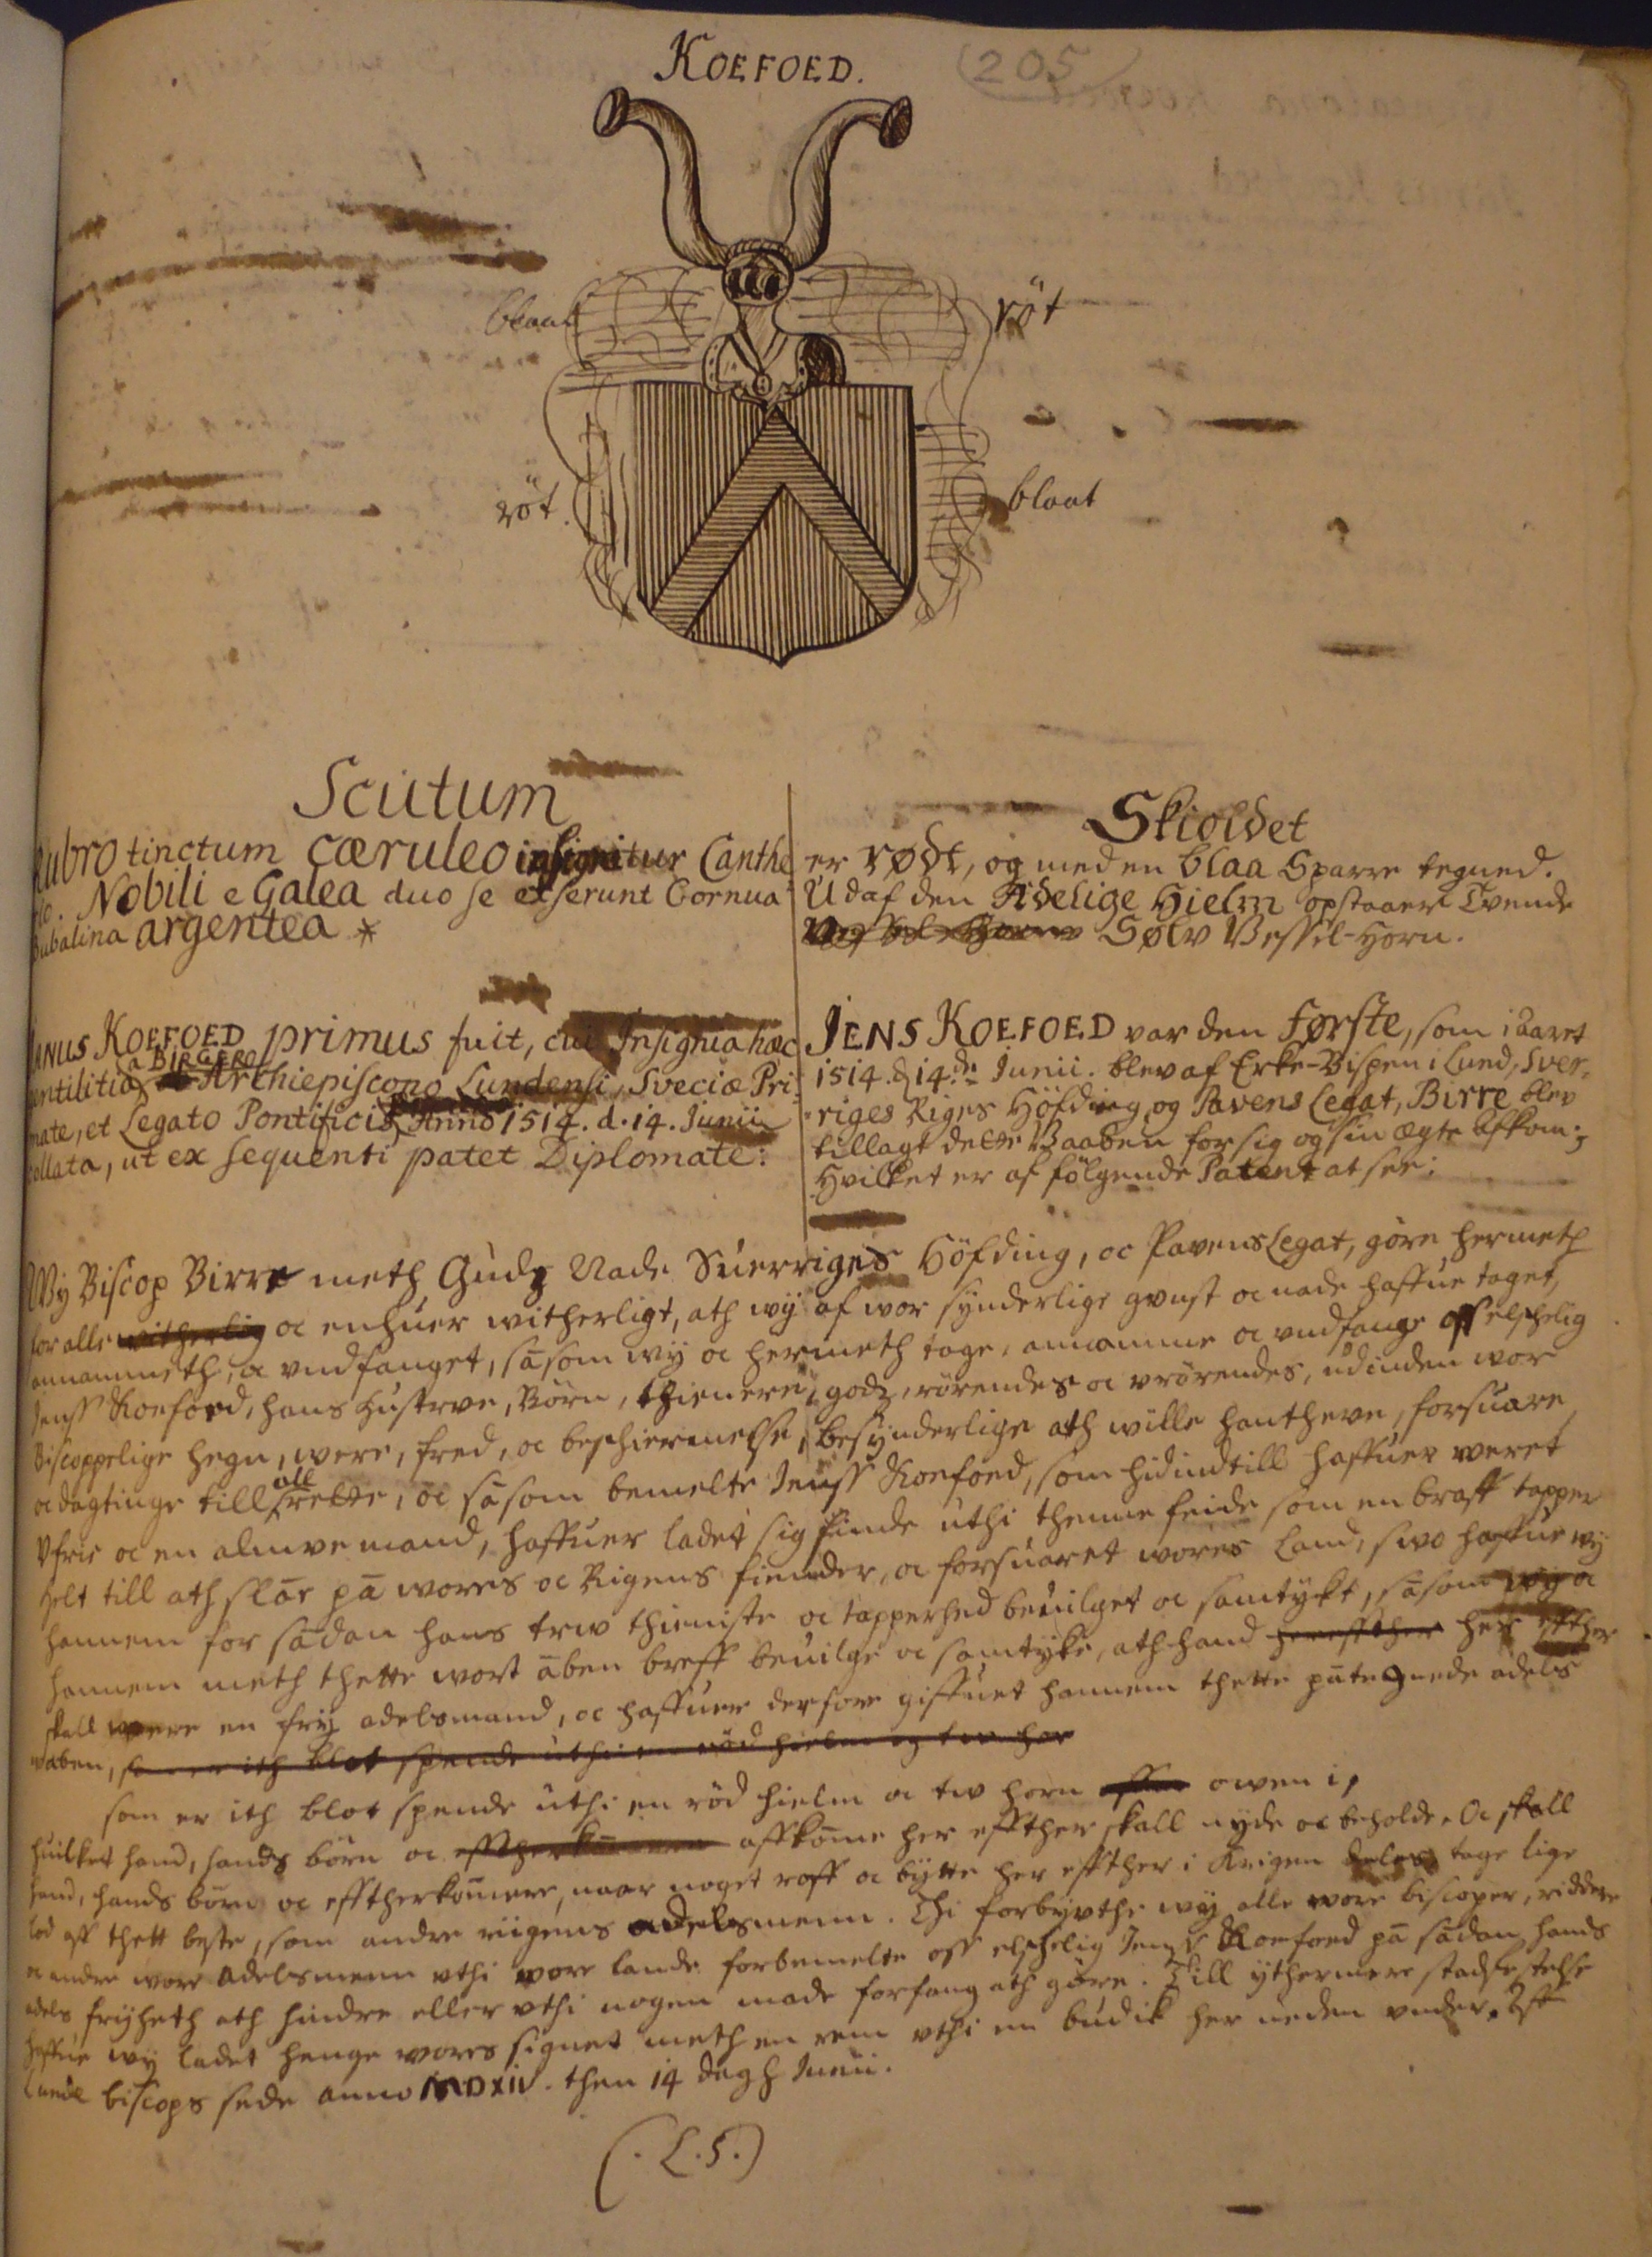 KOEFOED.
(205
blaat
röt
röt.
blaat
Scutum
Rubro tinctum cæruleo insignitur Canthe
rio. Nobili e Galea duo se exserunt Cornua
Bubalina argentea *
Skioldet
er rødt, og med en blaa Sparre tegned.
Udaf den Adelige Hielm opstaaer Tvende
Sølv Vessel-Horn.
JANUS KOEFOED primus fuit, cui Insignia hæc
a BIRGERO
gentilitia Archiepiscopo Lundensi, Sveciæ Pri-
mate, et Legato Pontificis Anno 1514. d. 14. Junii
collata, ut ex sequenti patet Diplomate:
JENS KOEFOED var den første, som i Aaret
1514. d 14.de Junii. blev af Erke-Bispen i Lund, Sver-
riges Riges Höfding, og Pavens Legat, Birre blev
tillagt dette Vaaben for sig og sin ægte Afkom;
Hvilket er af fölgende Patent at see:
Wy Biscop Birre meth Gudz Nade Suerriges Höfding, oc Pavens Legat, göre hermeth
for alle witherlig oc enhuer witherligt, ath wy af wor synderlige gunst oc nade haffue taget,
annammeth, oc undfanget, såsom wy oc hermeth tage, annamme oc undfange oss elschelig
Jenss Koefoed, hans Hustrve, Börn, thienere, godz, rörendes oc vrörendes, udinden wor
Biscoppelige hegn, were, fred, oc beschiermelse, besynderlige ath wille hantheve, forsuare,
oc dagtinge till all rette, oc såsom bemelte Jenss Koefoed, som hidindtill haffuer weret
Vfrie oc en almve mand, haffuer ladet sig finde uthi thenne feide som en braff tapper
Helt till ath slår på wores oc Rigens fiender, oc forsuaret wores Land, swo haffue wy
hannem for sådan hans trw thieniste oc tapperhed beuilget oc samtykt, såsom wy oc
hannem meth thette wort åben breff beuilge oc samtyke, ath hand hereffther her effther
skall were en fry adelsmand, oc haffuer derfore giffuet hannem thette påtegnede adels
waben, som er ith blot spende uthi en röd hielm og tw hor
som er ith blot spende uthi en röd hielm oc tw horn owen i,
huilket hand, hands börn oc effther kommere affkome her effther skall nyde oc beholde. Oc skall
hand, hands börn oc efftherkommere, naar noget roff oc bytte her effther i Krigen deles, tage lige
lod aff thett beste, som andre riigens adelsmenn. Thi forbyvthe wy alle wore biscoper, riddere
oc andre wore adelsmenn vthi wore lande forbemelte oss elschelig Jenss Koefoed på sådan hands
adels fryheth ath hindre eller vthi nogen made forfang ath göre. Till ythermere stadfestelse
haffue wy ladet henge wores signet meth en rem vthi en budik her neden under. Aff
Lunde biscops sede anno MDXIV. then 14 dagh Junii.
(. L. S.)